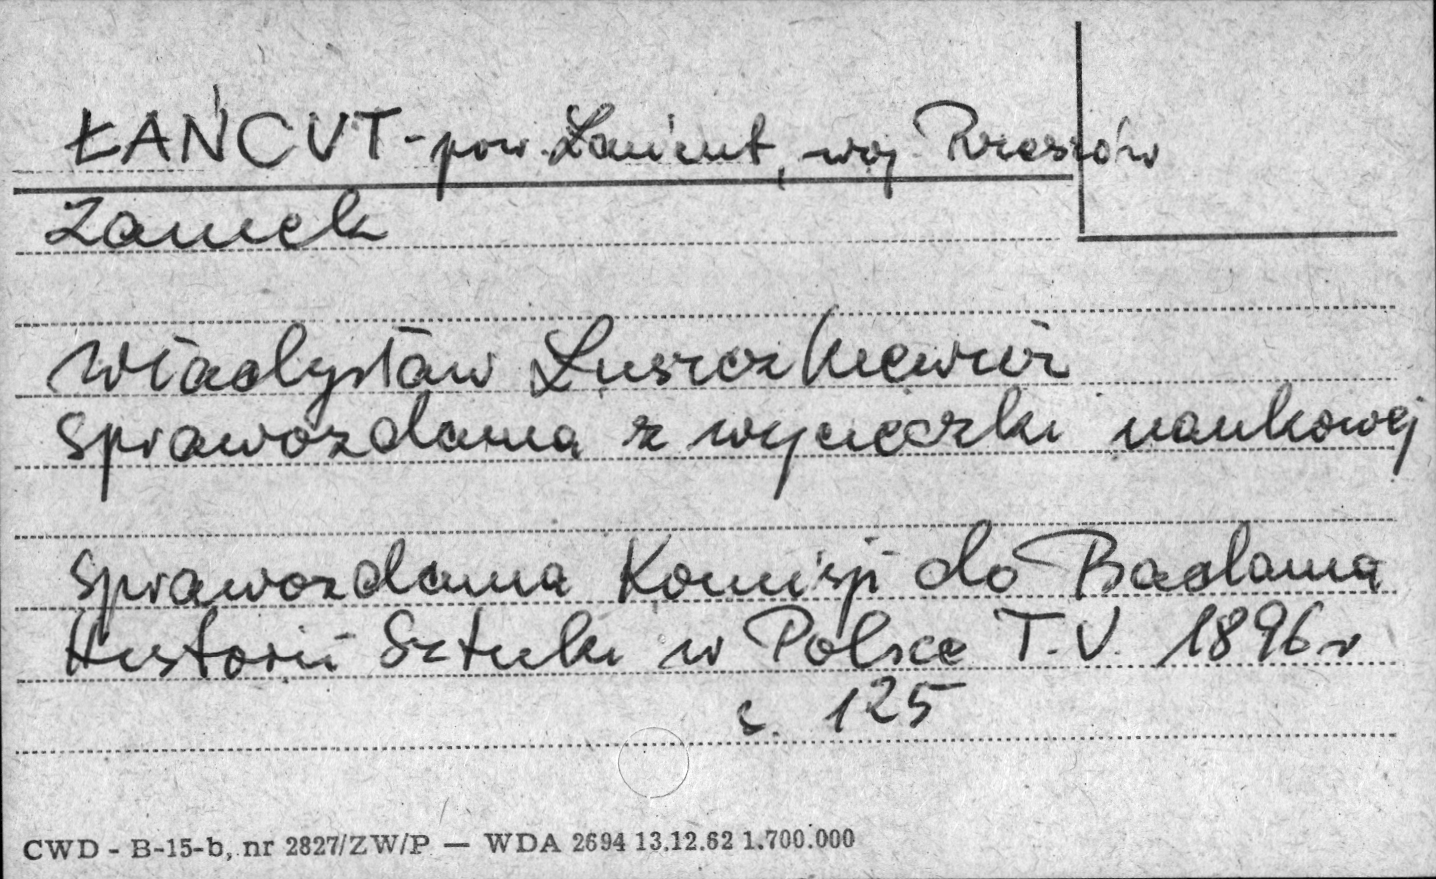 ŁAŃCUT - pow. Łańcut, woj Rzeszów
Zamek
Władysław Łuszczkiewicz
Sprawozdania z wycieczki naukowej
Sprawozdania Komisji do Badania
Historii Sztuki w Polsce T. V. 1896 r
s. 125
CWD - B-15-b, nr 2827/ZW/P — WDA 2694 13.12.62 1.700.000